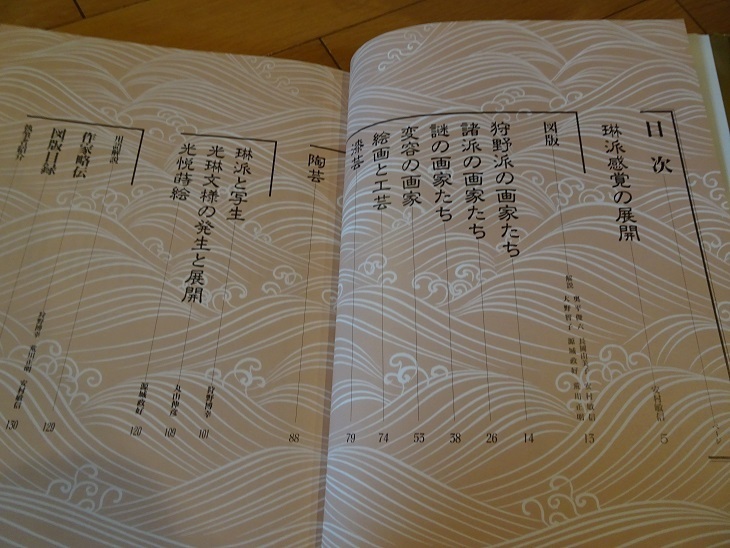 目次
琳派感覚の展開
安村敏信
5
図版
解説
13
狩野派の画家たち
14
諸派の画家たち
26
謎の画家たち
38
変容の画家
53
絵画と工芸
74
漆芸
79
陶芸
88
琳派と写生
狩野博幸
101
光琳文様の発生と展開
丸山伸彦
109
光悦蒔絵
源城政好
120
作家略伝
図版目録
129
130